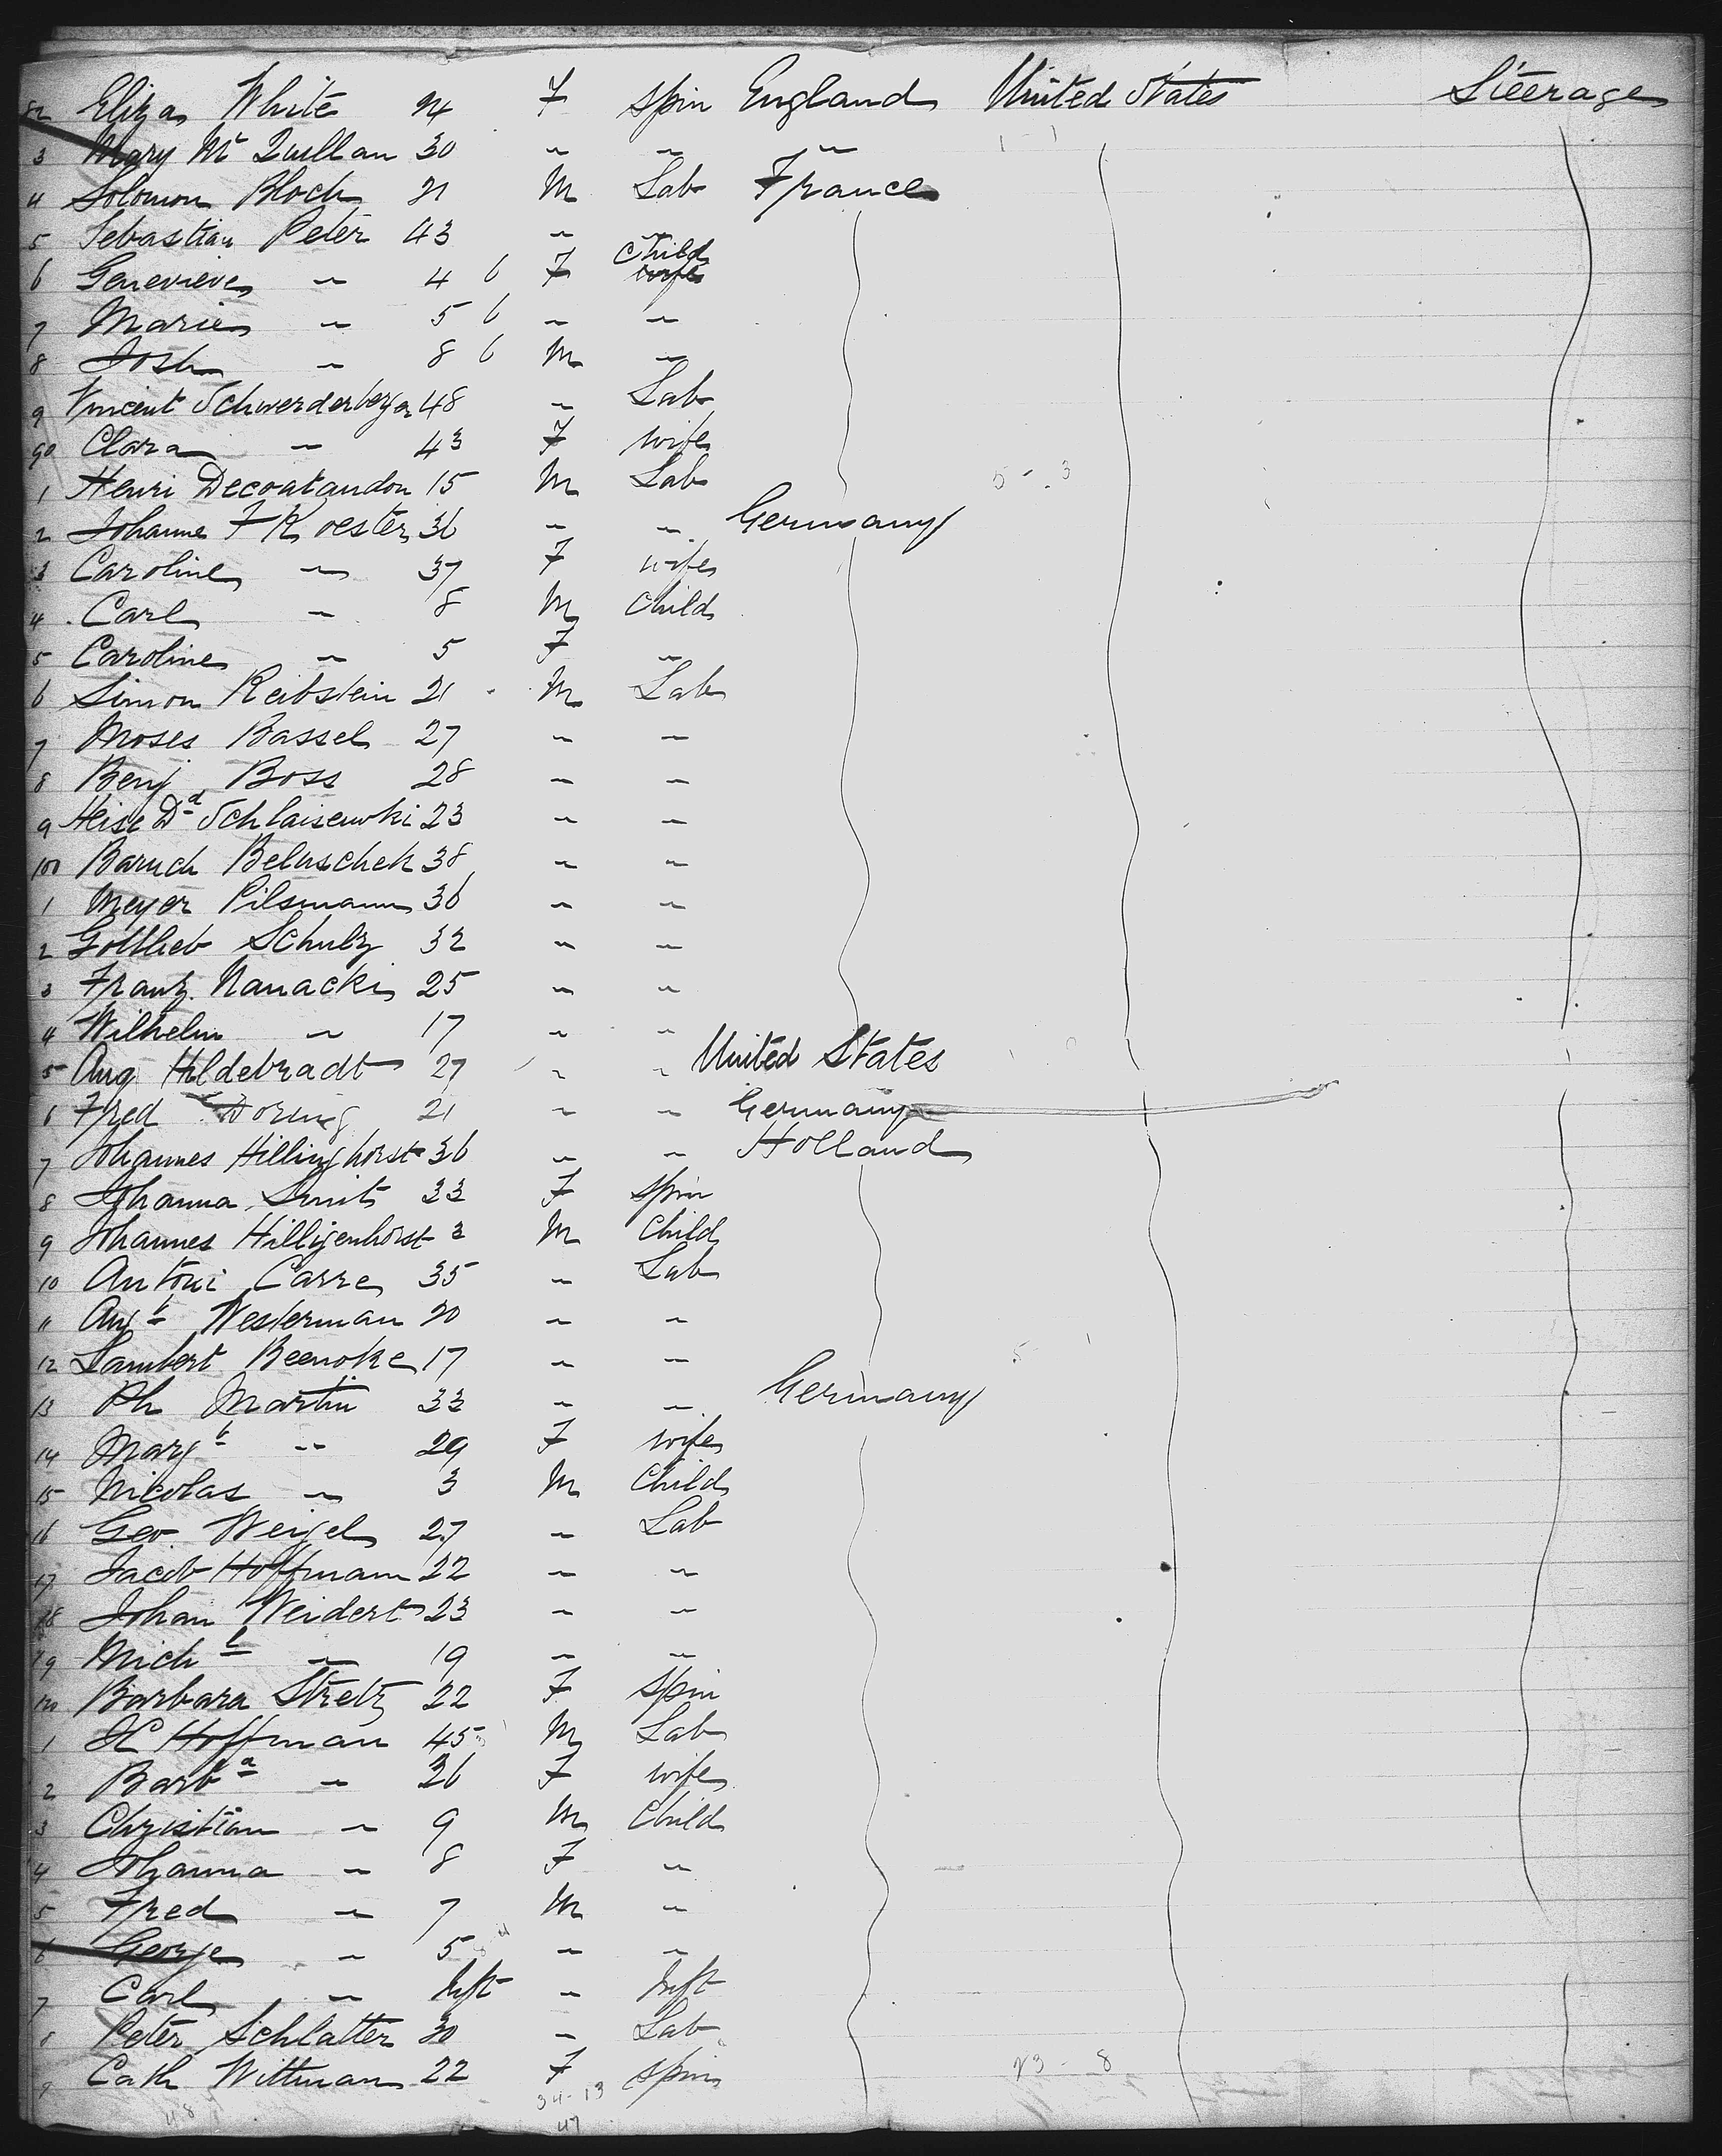 82 Eliza White 24 F Spin England United States Steerage
3 Mary Mc Quillan 30 " " "
4 Solomon Bloch 21 M Lab France
5 Sebastian Peter 43 " "
6 Genevieve " 4 6 F Child wife
7 Marie " 5 6 " "
8 Josh " 8 6 M "
9 Vincent Schwerderberger 48 " Lab
90 Clara " 43 F wife
1 Henri Decoatandon 15 M Lab
2 Johanne F Koester 36 " " Germany
3 Caroline " 37 F wife
4 Carl " 8 M Child
5 Caroline " 5 F "
6 Simon Reibstein 21 M Lab
7 Moses Bassel 27 " "
8 Benj Boss 28 " "
9 Heise Dd Schlaisewski 23 " "
100 Baruch Beluschek 38 " "
1 Meyer Pilsmann 36 " "
2 Gottlieb Schulz 32 " "
3 Franz Nanacki 25 " "
4 Wilhelm " 17 " "
5 Aug Hildebradt 27 " " United States
6 Fred Doring 21 " " Germany
7 Johannes Hillinghorst 36 " " Holland
8 Johanna Smit 33 F Spin
9 Johannes Hilligenhorst 3 M Child
10 Antoni Carre 35 " Lab
11 Augt Westerman 20 " "
12 Lambert Beenoke 17 " "
13 Ph Martin 33 " " Germany
14 Margt " 29 F wife
15 Nicolas " 3 M Child
16 Geo Weigel 27 " Lab
17 Jacob Hoffmann 22 " "
18 Johan Weidert 23 " "
19 Michl " 19 " "
120 Barbara Stretz 22 F Spin
1 H Hoffman 45 M Lab
2 Barba " 36 F wife
3 Christian " 9 M Child
4 Johanna " 8 F "
5 Fred " 7 M "
6 George " 5 " "
7 Carl " Inft " Inft
8 Peter Schlatter 30 " Lab
9 Cath Wittman 22 F Spin
23 - 8
34 - 13
48
47